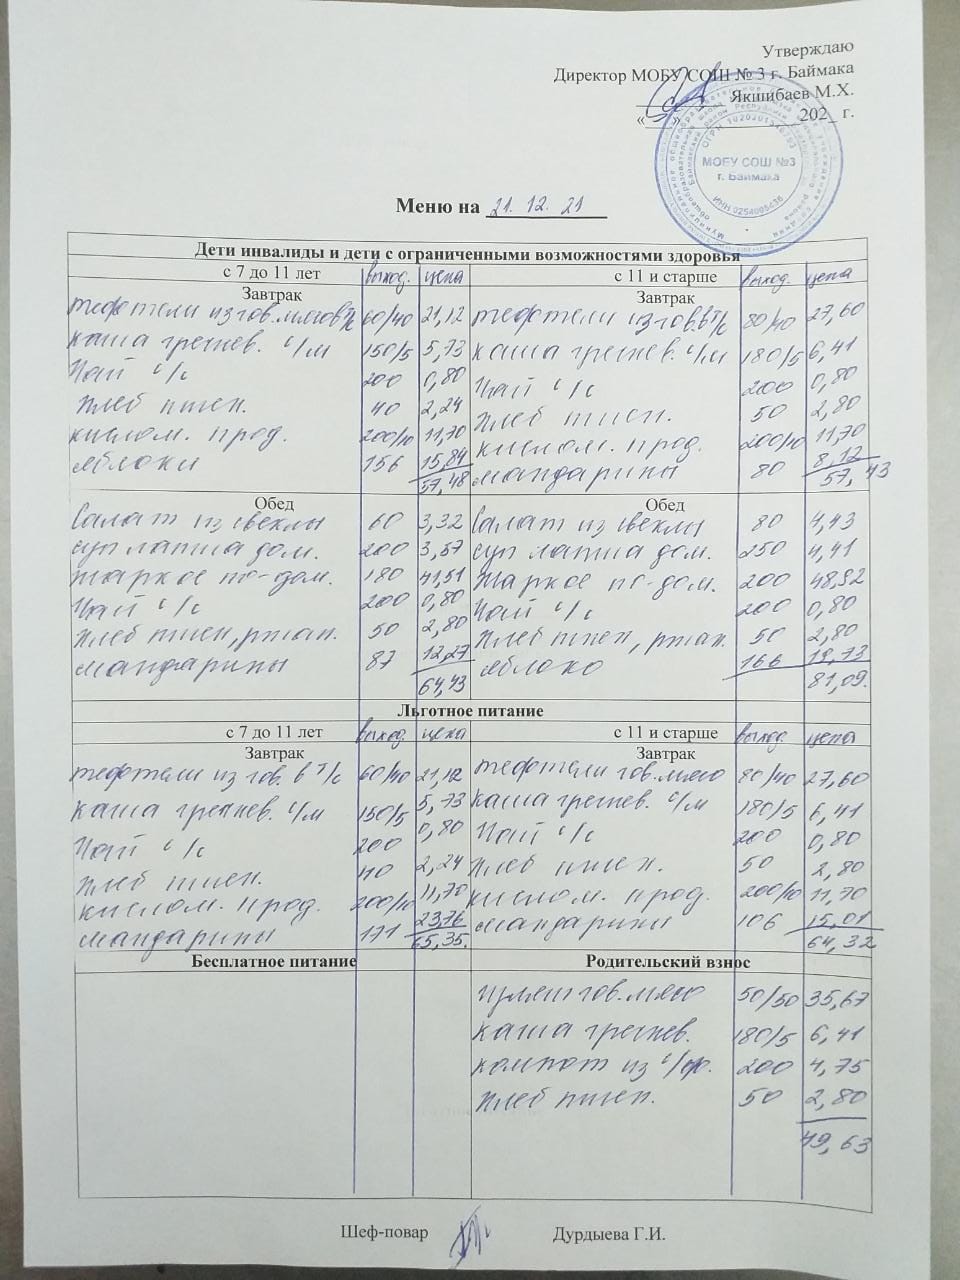 Утверждаю
Директор МОБУ СОШ № 3 г. Баймака
Якшибаев М.Х.
«___»______________202_ г.
МОБУ СОШ №3
г. Баймака
ОГРН
ИНН 0254005436
Меню на 21. 12. 21
Дети инвалиды и дети с ограниченными возможностями здоровья
с 7 до 11 лет выход. цена с 11 и старше выход. цена
Завтрак Завтрак
тефтели из гов. мяса в т/с 60/40 21,12 тефтели из гов. в т/с 80/40 27,60
каша гречнев. с/м 150/5 5,73 каша гречнев. с/м 180/5 6,41
Чай с/с 200 0,80 Чай с/с 200 0,80
Хлеб пшен. 40 2,24 Хлеб пшен. 50 2,80
кислом. прод. 200/10 11,70 кислом. прод. 200/10 11,70
яблоки 156 15,89 мандарины 80 8,12
57,48 57,43
Обед Обед
Салат из свеклы 60 3,32 Салат из свеклы 80 4,43
суп лапша дом. 200 3,57 суп лапша дом. 250 4,41
жаркое по-дом. 180 41,51 жаркое по-дом. 200 48,92
Чай с/с 200 0,80 Чай с/с 200 0,80
Хлеб пшен, ржан. 50 2,80 Хлеб пшен, ржан. 50 2,80
мандарины 87 12,27 яблоко 166 19,73
64,43 81,09.
Льготное питание
с 7 до 11 лет выход. цена с 11 и старше выход. цена
Завтрак Завтрак
тефтели из гов. в т/с 60/40 21,12 тефтели гов. мясо 80/40 27,60
каша гречнев. с/м 150/5 5,73 каша гречнев. с/м 180/5 6,41
Чай с/с 200 0,80 Чай с/с 200 0,80
Хлеб пшен. 40 2,24 Хлеб пшен. 50 2,80
кислом. прод. 200/10 11,70 кислом. прод. 200/10 11,70
мандарины 171 23,76 мандарины 106 15,01
65,35. 64,32
Бесплатное питание Родительский взнос
гуляш гов. мясо 50/50 35,67
каша гречнев. 180/5 6,41
компот из с/фр. 200 4,75
Хлеб пшен. 50 2,80
49,63
Шеф-повар Дурдыева Г.И.